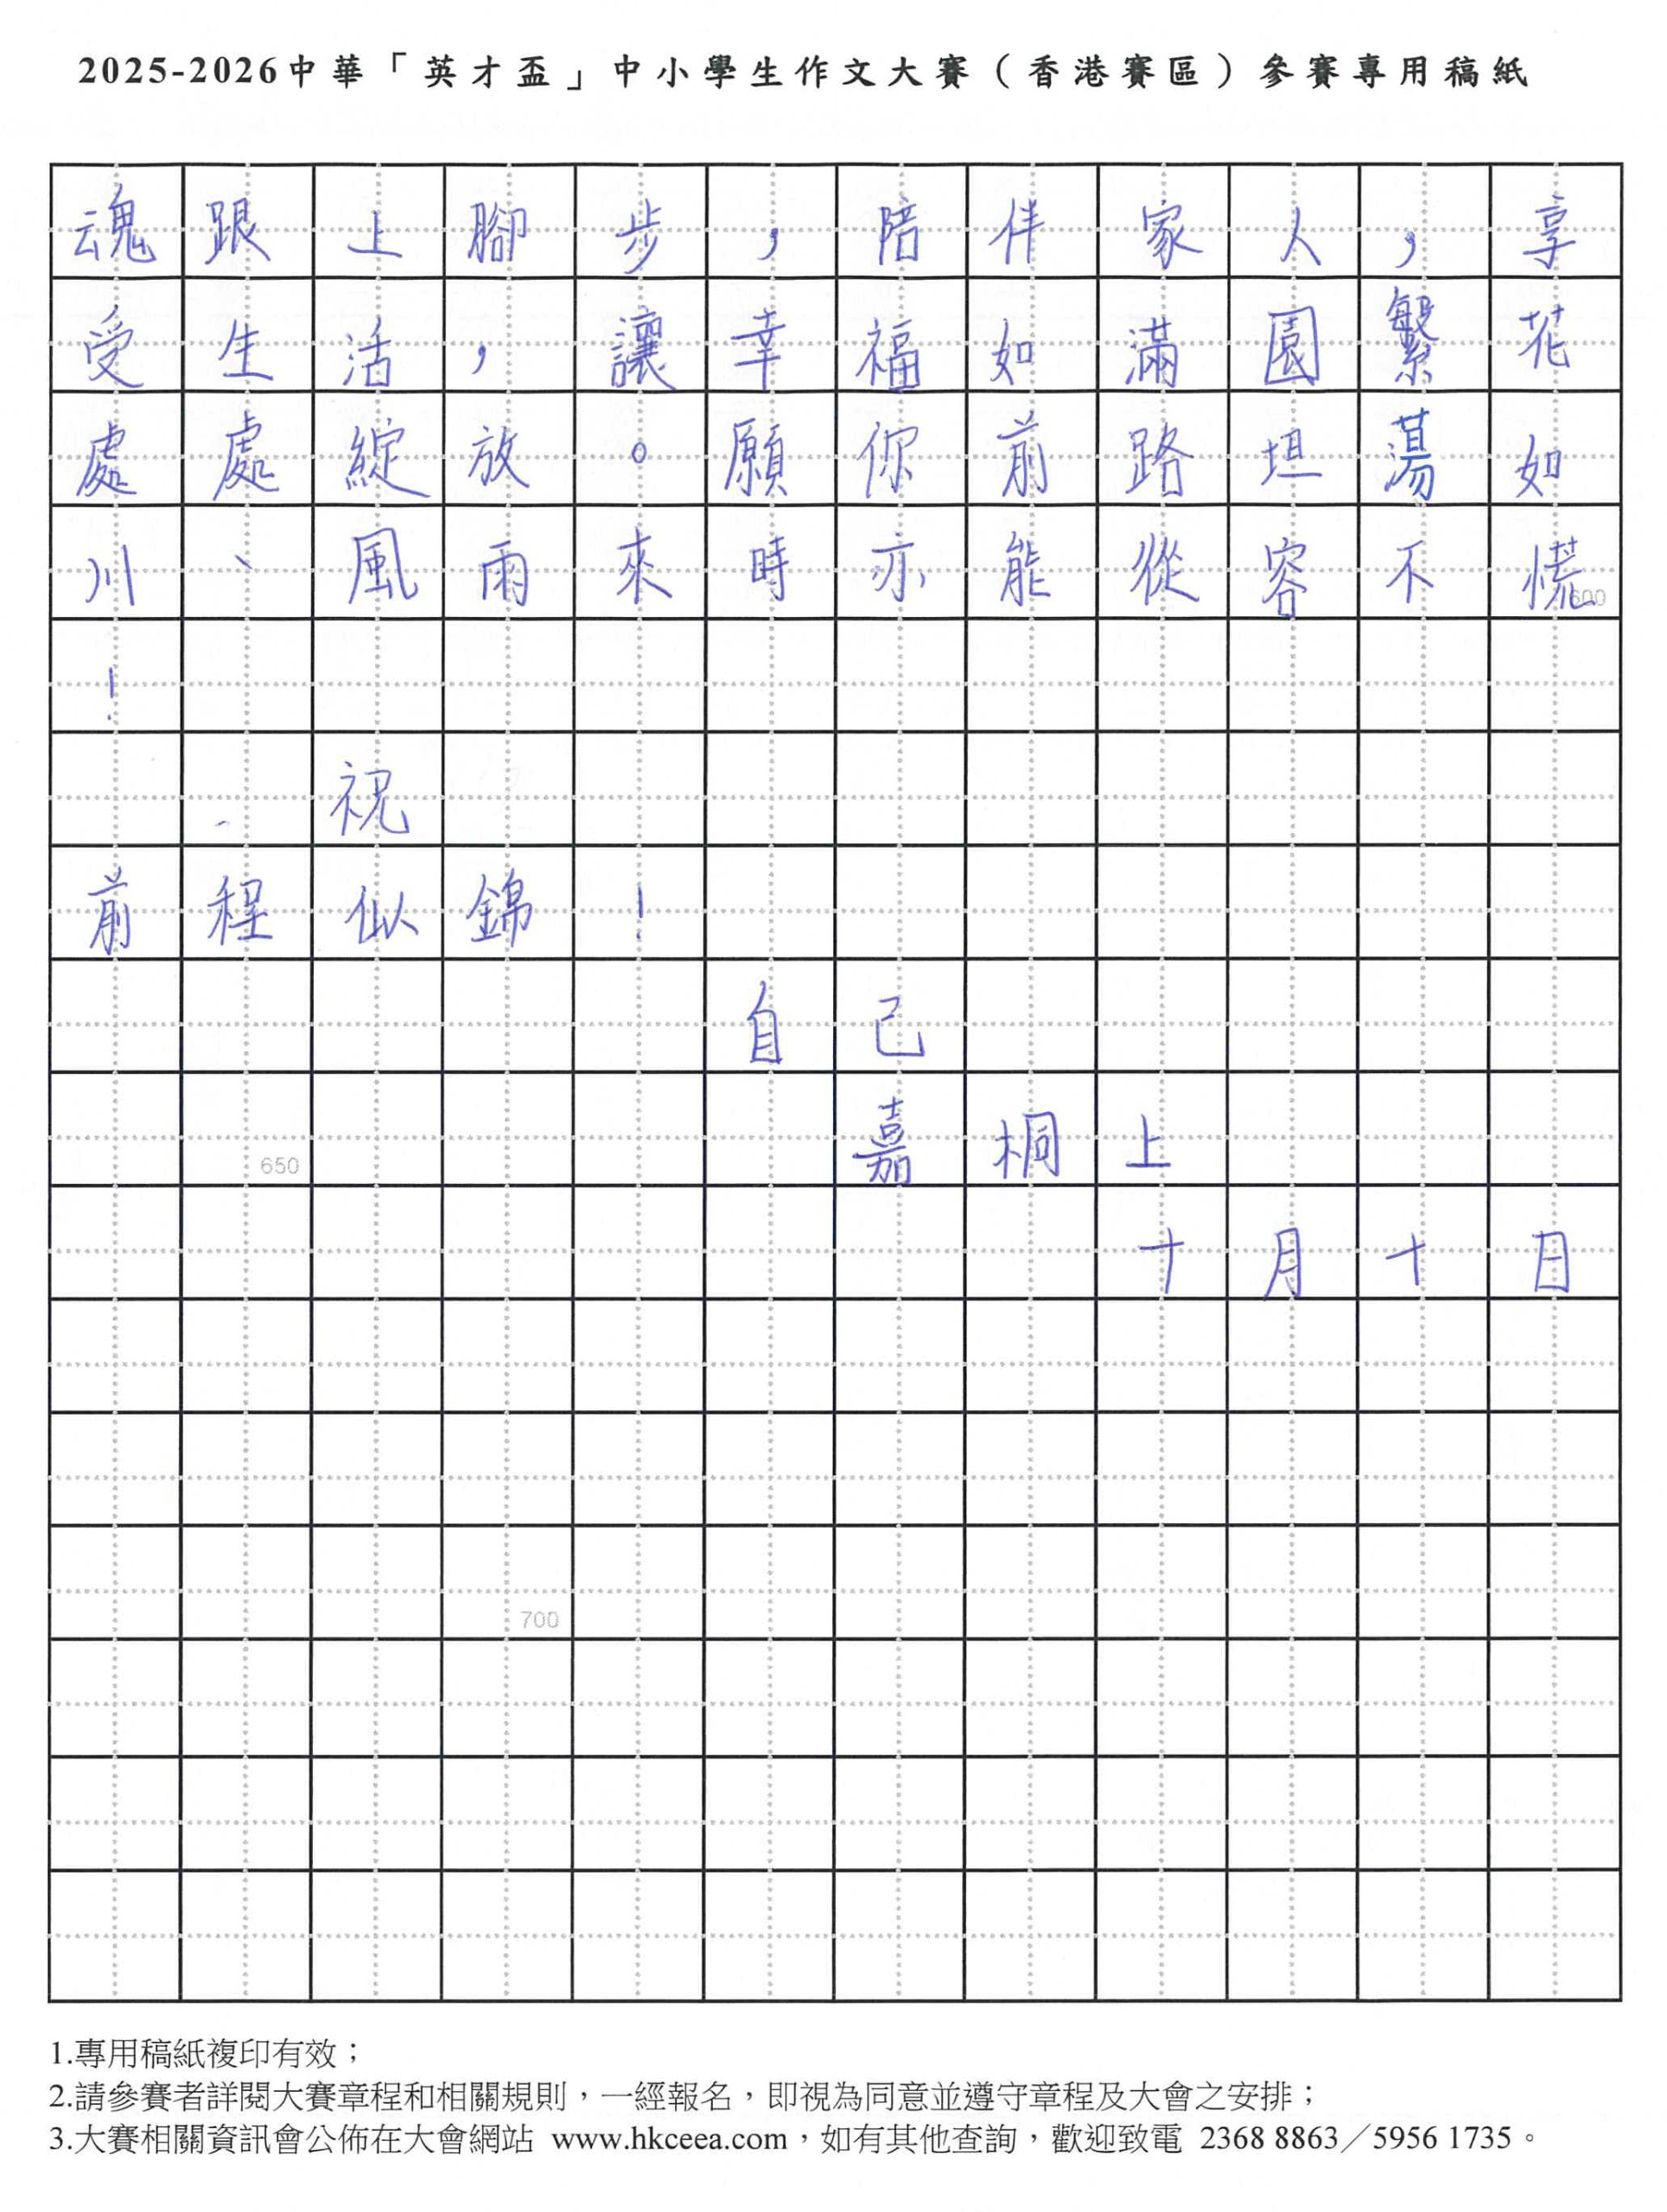 2025-2026中華「英才盃」中小學生作文大賽（香港賽區）參賽專用稿紙
魂跟上腳步，陪伴家人，享
受生活，讓幸福如滿園繁花
處處綻放。願你前路坦蕩如
川、風雨來時亦能從容不慌
600
！
祝
前程似錦！
自己
嘉桐上
650
十月十日
700
1.專用稿紙複印有效；
2.請參賽者詳閱大賽章程和相關規則，一經報名，即視為同意並遵守章程及大會之安排；
3.大賽相關資訊會公佈在大會網站 www.hkceea.com，如有其他查詢，歡迎致電 2368 8863／5956 1735。